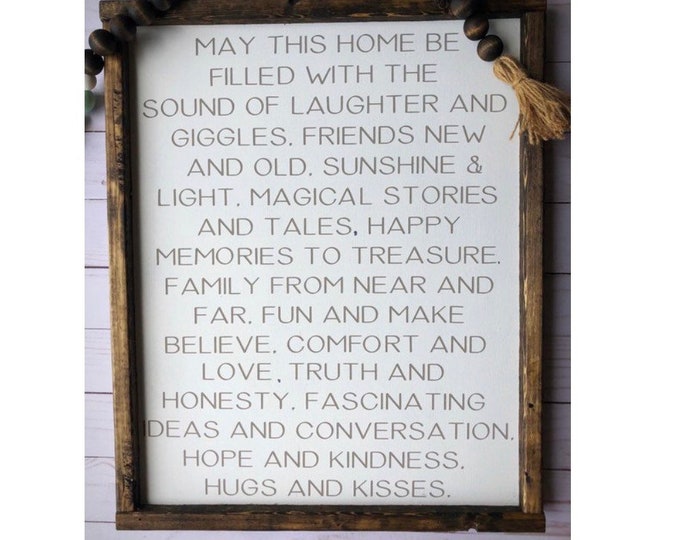 MAY THIS HOME BE
FILLED WITH THE
SOUND OF LAUGHTER AND
GIGGLES, FRIENDS NEW
AND OLD, SUNSHINE &
LIGHT, MAGICAL STORIES
AND TALES, HAPPY
MEMORIES TO TREASURE.
FAMILY FROM NEAR AND
FAR, FUN AND MAKE
BELIEVE, COMFORT AND
LOVE, TRUTH AND
HONESTY, FASCINATING
IDEAS AND CONVERSATION,
HOPE AND KINDNESS.
HUGS AND KISSES.